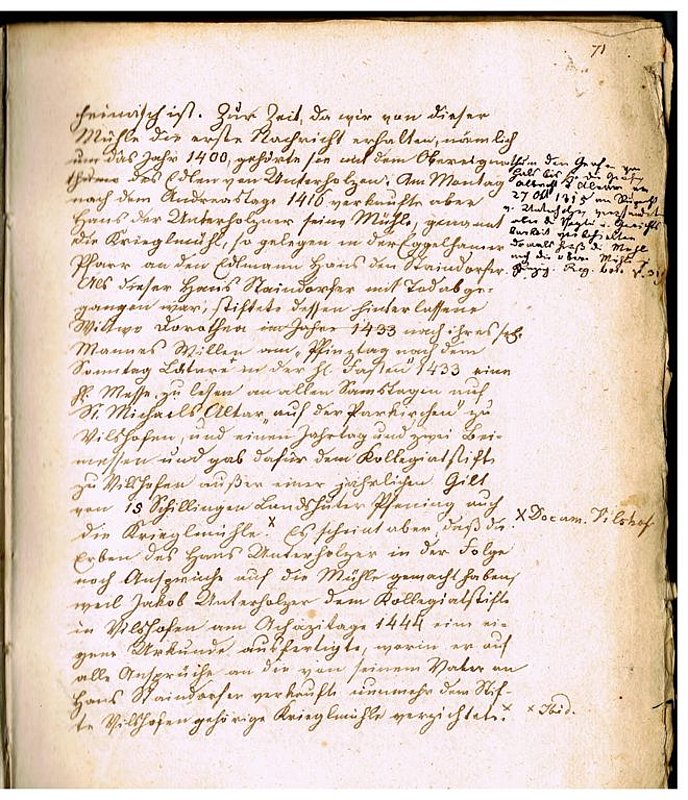 71
heimisch ist. Zur Zeit, da wir von dieser
Mühle die erste Nachricht erhalten, nämlich
um das Jahr 1400, gehörte sie mit dem Obereigen-
thume des Edlen von Unterholzen. Am Montag
nach dem Andreastage 1416 verkaufte aber
Hans der Unterholzner seine Mühle, genannt
die Krieglmühl, so gelegen in der Eggelhamer
Pfarr an den Edlmann Hans den Staindorfer.
Als dieser Hans Staindorfer mit Tod abge-
gangen war, stiftete dessen hinterlassene
Wittwe Dorothea im Jahre 1433 nach ihres sel.
Mannes Willen am „Pfinztag nach dem
Sonntag Lätare in der hl. Fasten" 1433 eine
hl. Messe zu lesen an allen Samstagen auf
St. Michaels Altar „auf der Parkirchen" zu
Vilshofen, und einen Jahrtag und zwei Bei-
messen und gab dafür dem Kollegiatstift
zu Vilshofen außer einer jährlichen Gilt
von 13 Schillingen Landshuter Pfening auch
die Krieglmühle. x Es scheint aber, daß die
Erben des Hans Unterholzer in der Folge
noch Ansprüche auf die Mühle gemacht haben,
weil Jakob Unterholzer dem Kollegiatstifte
in Vilshofen am Achazitage 1444 eine ei-
gene Urkunde ausfertigte, worin er auf
alle Ansprüche an die von seinem Vater an
Hans Staindorfer verkaufte nunmehr dem Stif-
te Vilshofen gehörige Krieglmühle verzichtete. x
den Grafen von
Hals
27 Okt 1375
die obere Mühl
Reg. boic.
x Docum. Vilshof.
x Ibid.